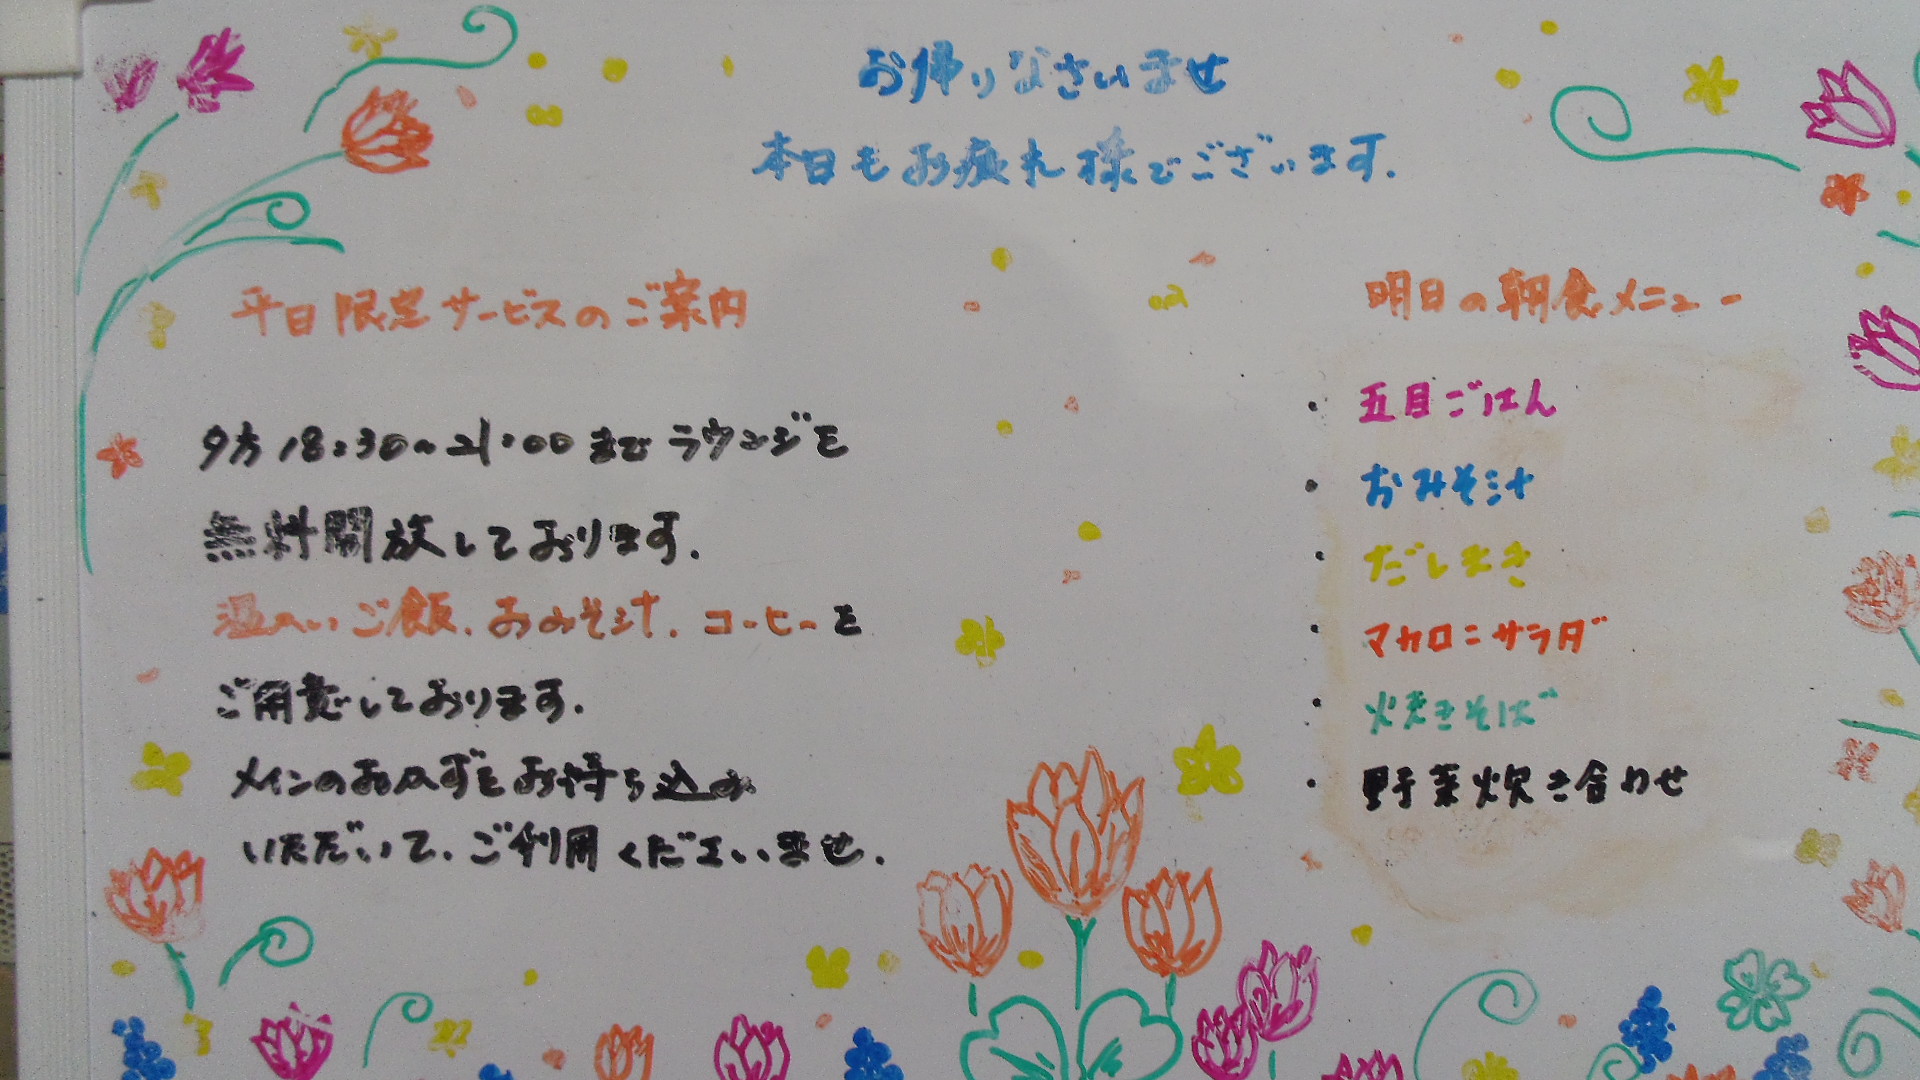 お帰りなさいませ
本日もお疲れ様でございます.
平日限定サービスのご案内
夕方18:30~21:00までラウンジを
無料開放しております.
温かいご飯.おみそ汁.コーヒーを
ご用意しております.
メインのおかずをお持ち込み
いただいて.ご利用くださいませ.
明日の朝食メニュー
・五目ごはん
・おみそ汁
・だしまき
・マカロニサラダ
・焼きそば
・野菜炊き合わせ